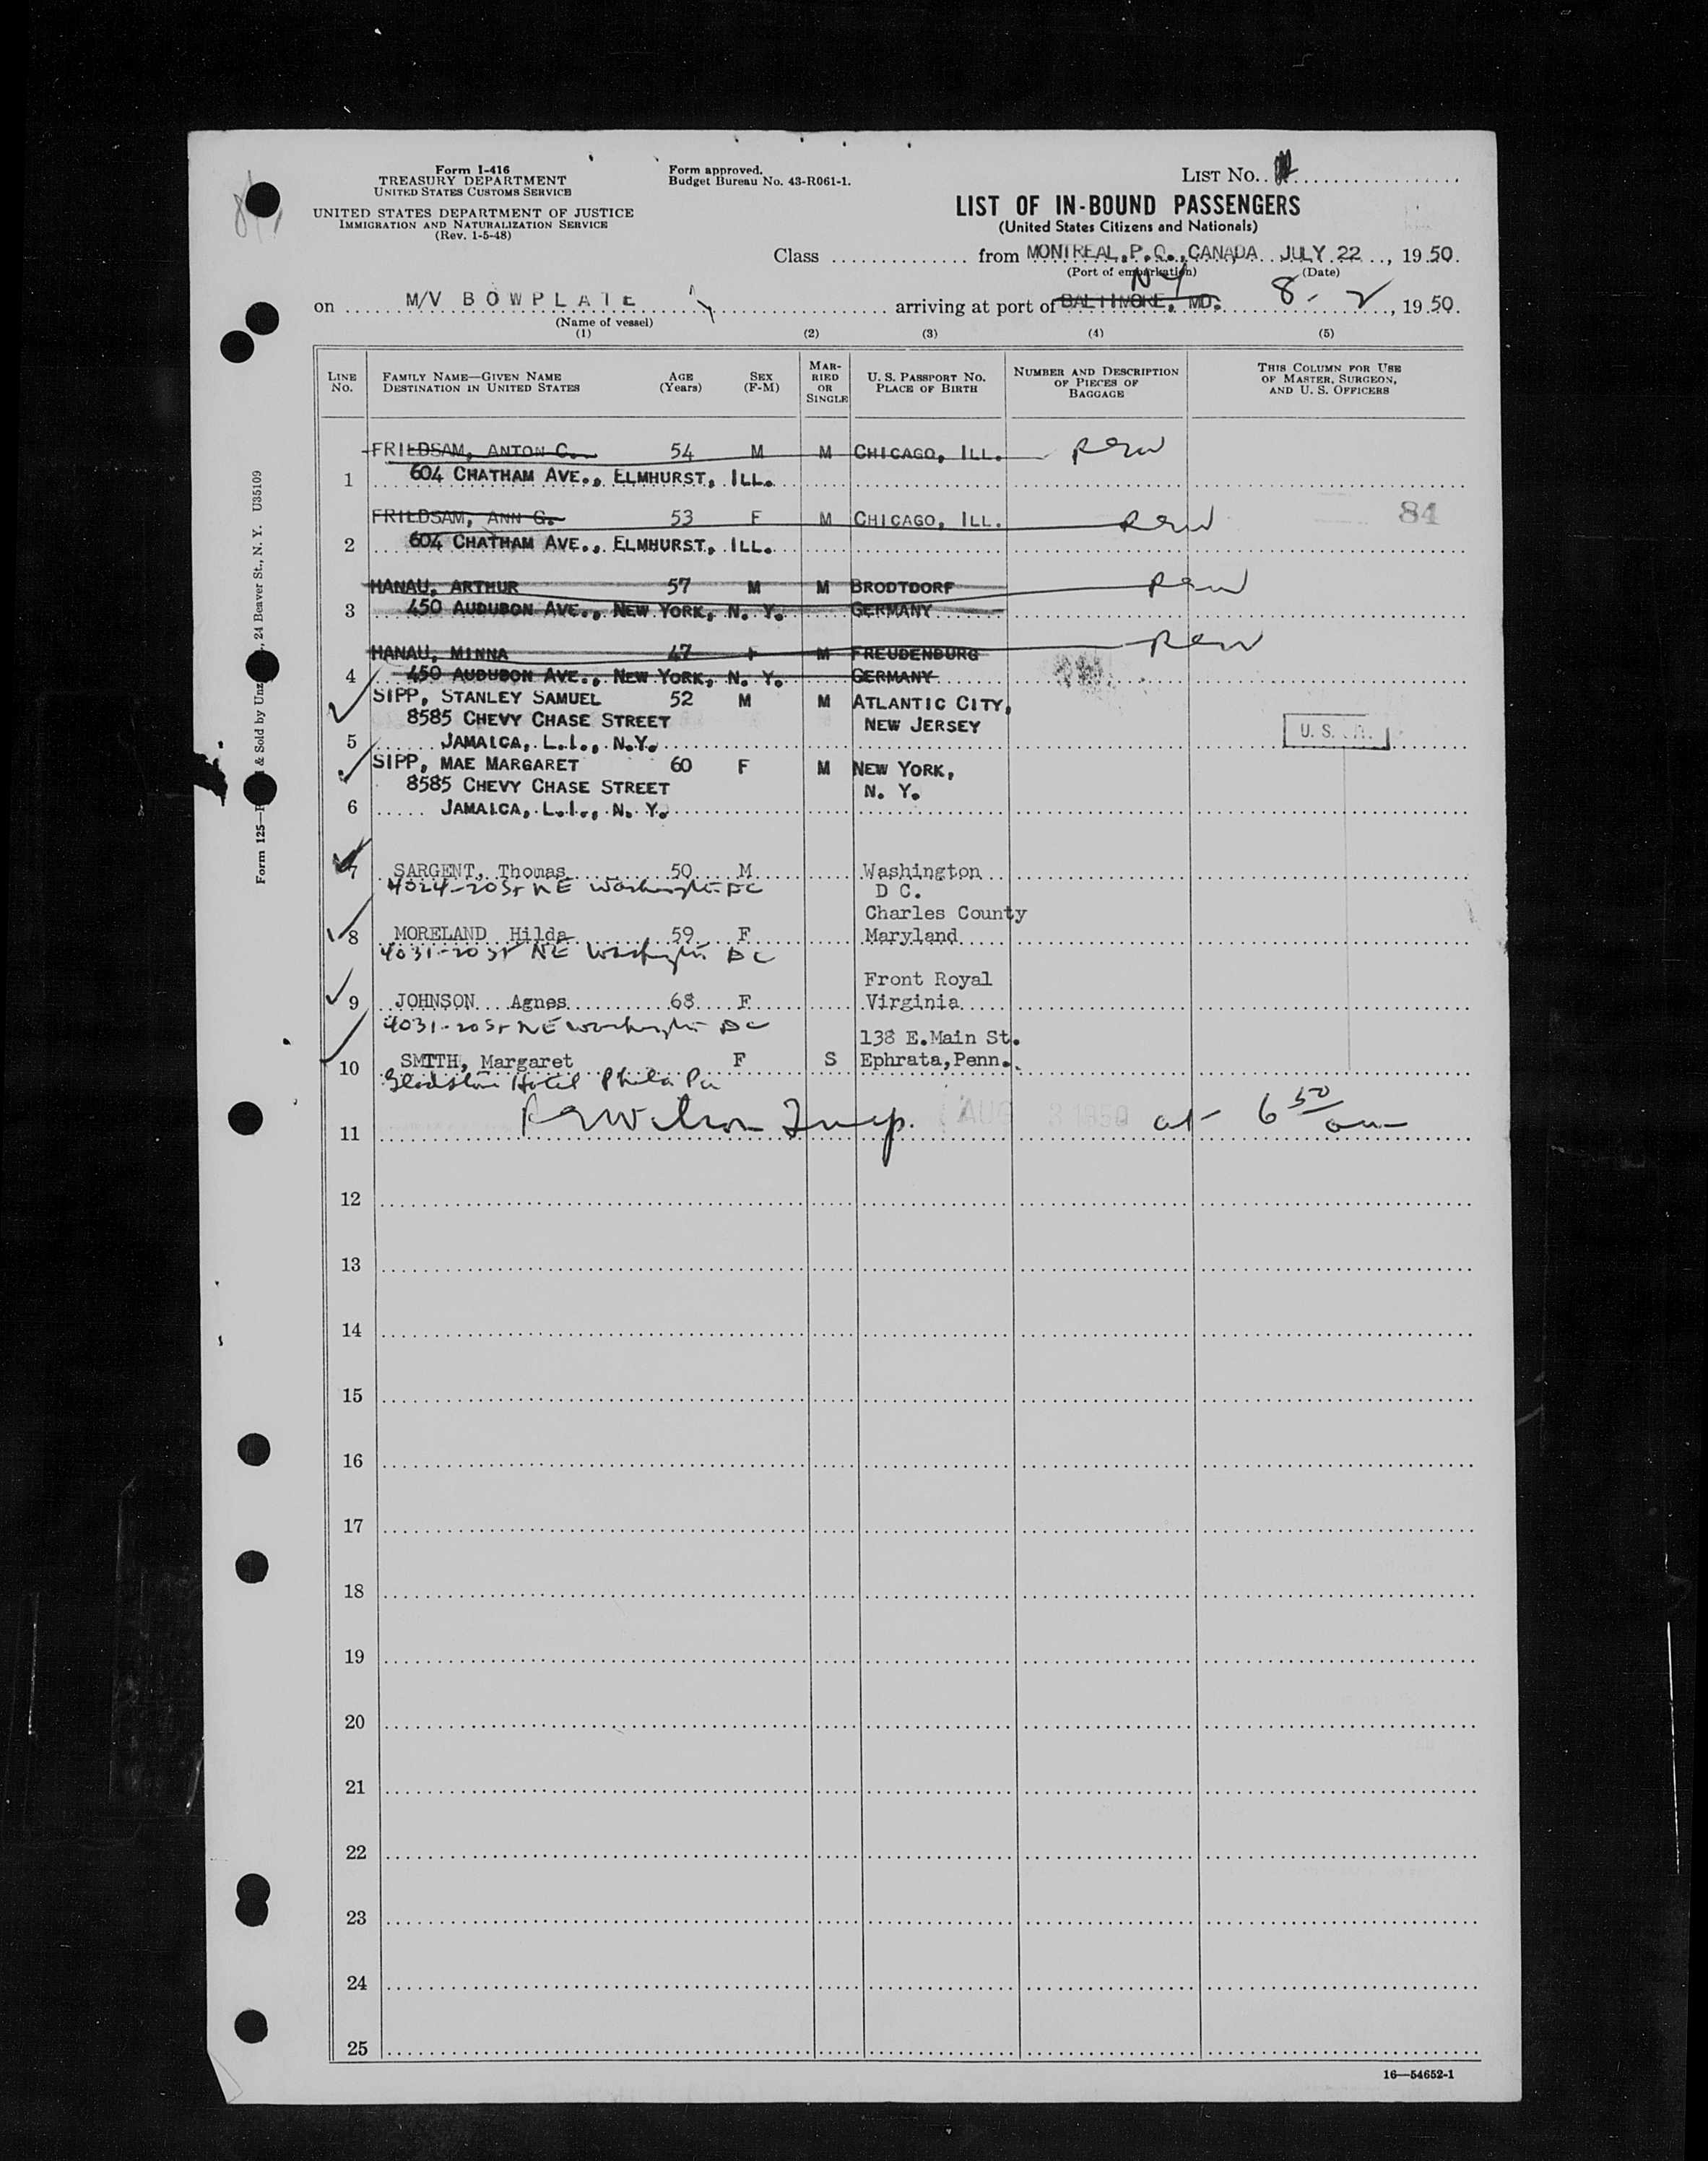 Form I-416
TREASURY DEPARTMENT
UNITED STATES CUSTOMS SERVICE
UNITED STATES DEPARTMENT OF JUSTICE
IMMIGRATION AND NATURALIZATION SERVICE
(Rev. 1-5-48)
Form approved.
Budget Bureau No. 43-R061-1.
LIST No.
LIST OF IN-BOUND PASSENGERS
(United States Citizens and Nationals)
Class from MONTREAL, P. Q., CANADA JULY 22, 1950.
(Port of embarkation) (Date)
NY
on M/V BOWPLATE arriving at port of BALTIMORE, MD. 8-2, 1950.
(Name of vessel)
(1) (2) (3) (4) (5)
LINE No. FAMILY NAME—GIVEN NAME DESTINATION IN UNITED STATES AGE (Years) SEX (F-M) MARRIED OR SINGLE U. S. PASSPORT No. PLACE OF BIRTH NUMBER AND DESCRIPTION OF PIECES OF BAGGAGE THIS COLUMN FOR USE OF MASTER, SURGEON, AND U. S. OFFICERS
FRIEDSAM, ANTON C. 54 M M CHICAGO, ILL. REW
1 604 CHATHAM AVE., ELMHURST, ILL.
FRIEDSAM, ANN G. 53 F M CHICAGO, ILL. REW
84
2 604 CHATHAM AVE., ELMHURST, ILL.
HANAU, ARTHUR 57 M M BRODTDORF REW
3 450 AUDUBON AVE., NEW YORK, N. Y. GERMANY
HANAU, MINNA 47 F M FREUDENBURG REW
4 450 AUDUBON AVE., NEW YORK, N. Y. GERMANY
SIPP, STANLEY SAMUEL 52 M M ATLANTIC CITY,
8585 CHEVY CHASE STREET NEW JERSEY
5 JAMAICA, L.I., N.Y. U. S.
SIPP, MAE MARGARET 60 F M NEW YORK,
8585 CHEVY CHASE STREET N. Y.
6 JAMAICA, L.I., N. Y.
7 SARGENT, Thomas 50 M Washington
4024-20 St NE Washington DC D C.
Charles County
8 MORELAND Hilda 59 F Maryland
4031-20 St NE Washington DC
Front Royal
9 JOHNSON Agnes 68 F Virginia
4031-20 St NE Washington DC
138 E.Main St.
10 SMITH, Margaret F S Ephrata,Penn.
Gladstone Hotel Phila Pa
REWilson Insp. AUG 3 1950 at 6 50 am
11
12
13
14
15
16
17
18
19
20
21
22
23
24
25
16—54652-1
Form 125— & Sold by Unz , 24 Beaver St., N. Y. U35109